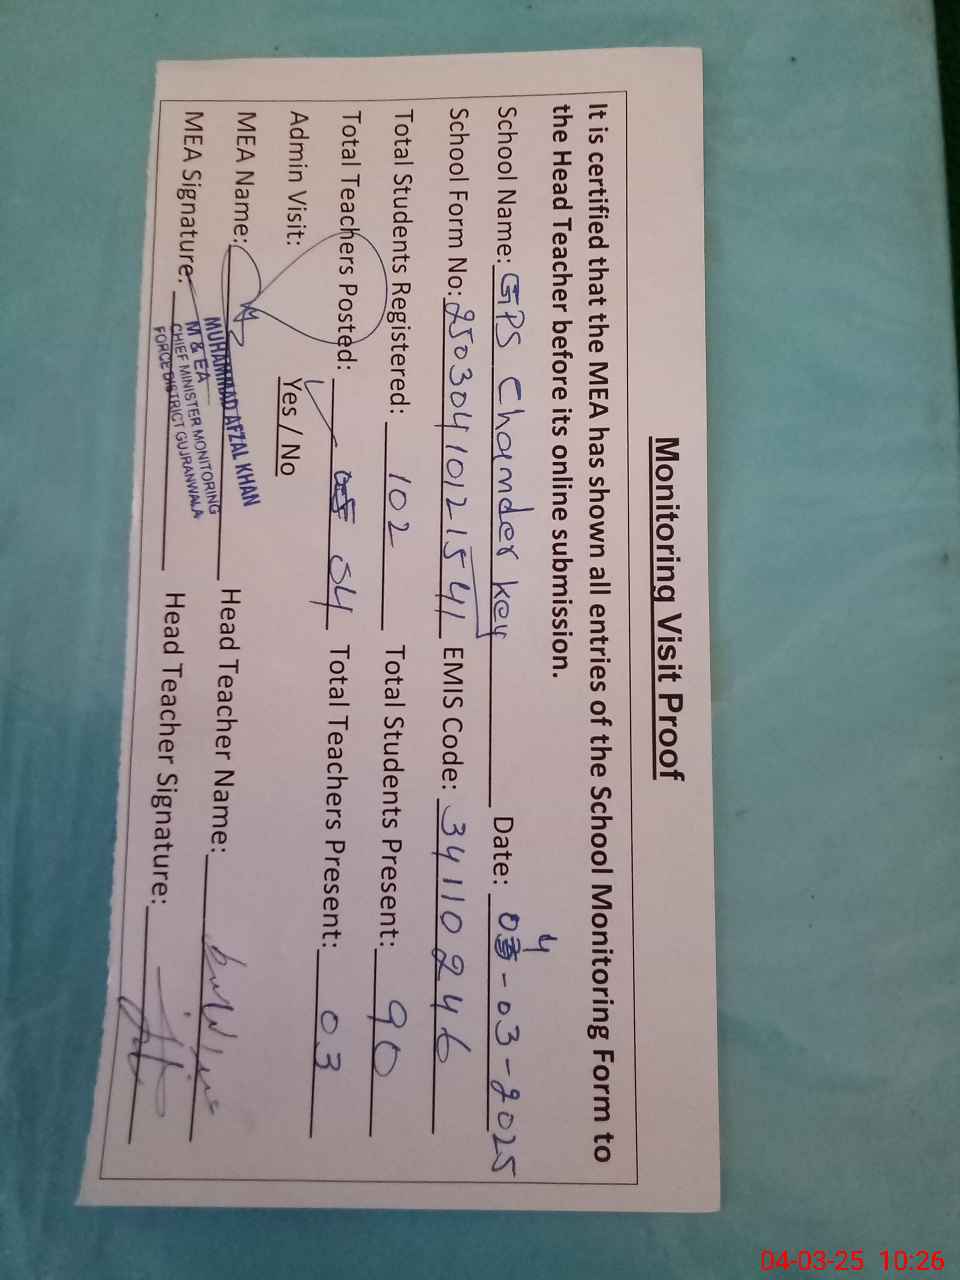 Monitoring Visit Proof
It is certified that the MEA has shown all entries of the School Monitoring Form to
the Head Teacher before its online submission.
School Name: GPS Chamder key Date: 04-03-2025
School Form No: 25030410121541 EMIS Code: 34110246
Total Students Registered: 102 Total Students Present: 90
Total Teachers Posted: 04 Total Teachers Present: 03
Admin Visit: Yes / No
MEA Name: Head Teacher Name:
MEA Signature: Head Teacher Signature:
MUHAMMAD AFZAL KHAN
M & EA
CHIEF MINISTER MONITORING
FORCE DISTRICT GUJRANWALA
04-03-25 10:26